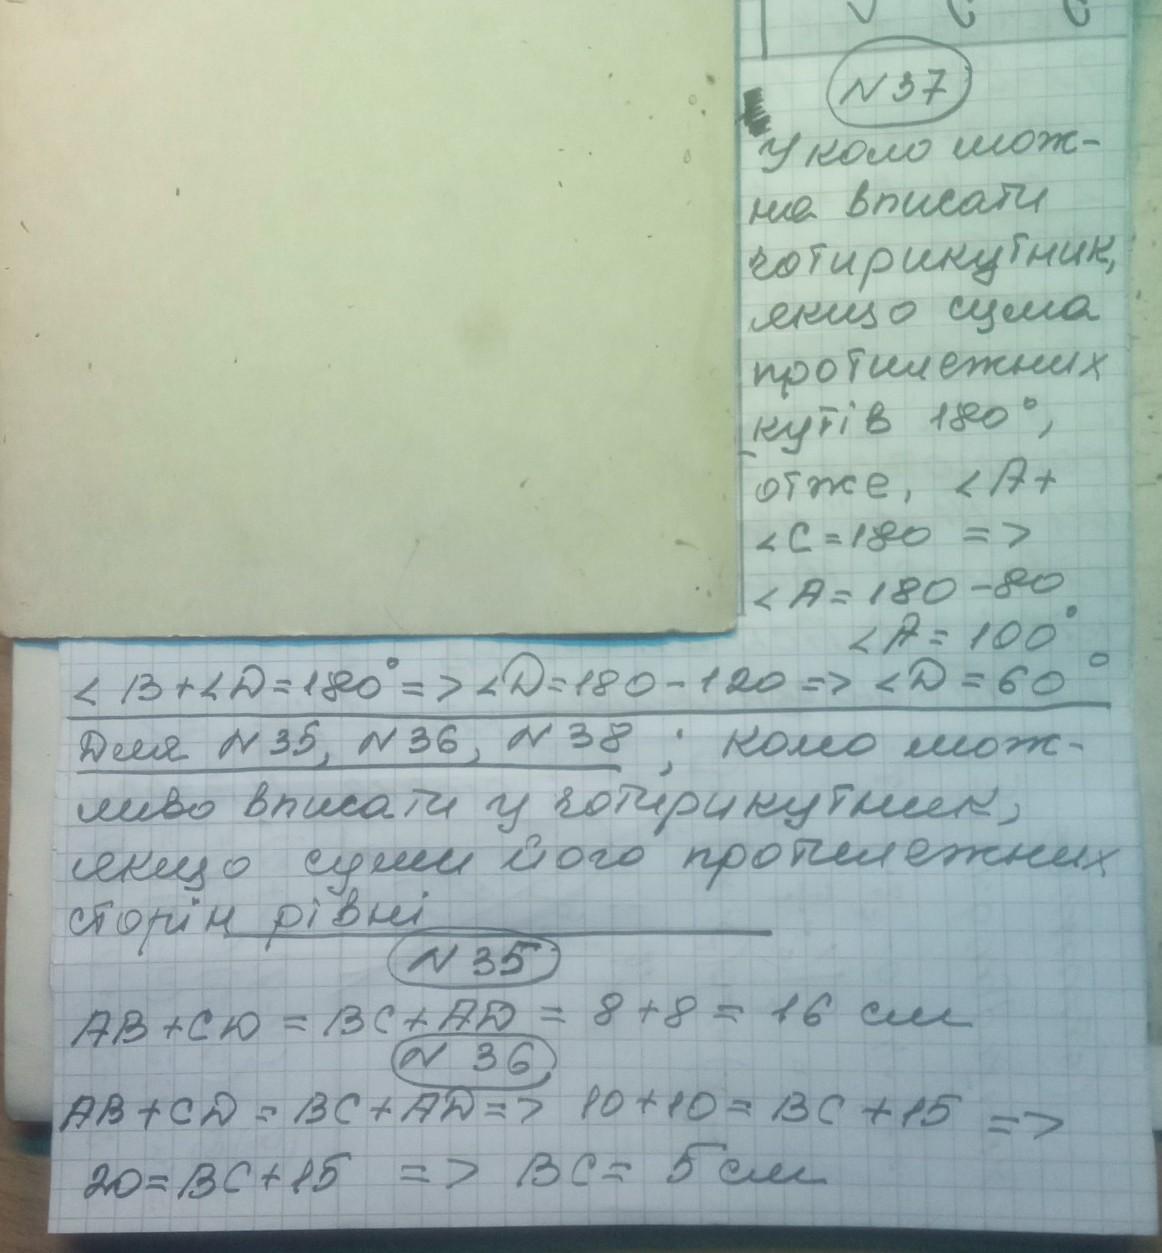 N37
У коло мож-
на вписати
чотирикутник,
якщо сума
протилежних
кутів 180°,
отже, <A+
<C=180 =>
<A=180-80
<A=100°
<B+<D=180°=><D=180-120=> <D=60°
Для N35, N36, N38; коло мож-
ливо вписати у чотирикутник,
якщо суми його протилежних
сторін рівні
N35
AB+CD=BC+AD=8+8=16 см
N36
AB+CD=BC+AD=> 10+10=BC+15 =>
20=BC+15 => BC=5см